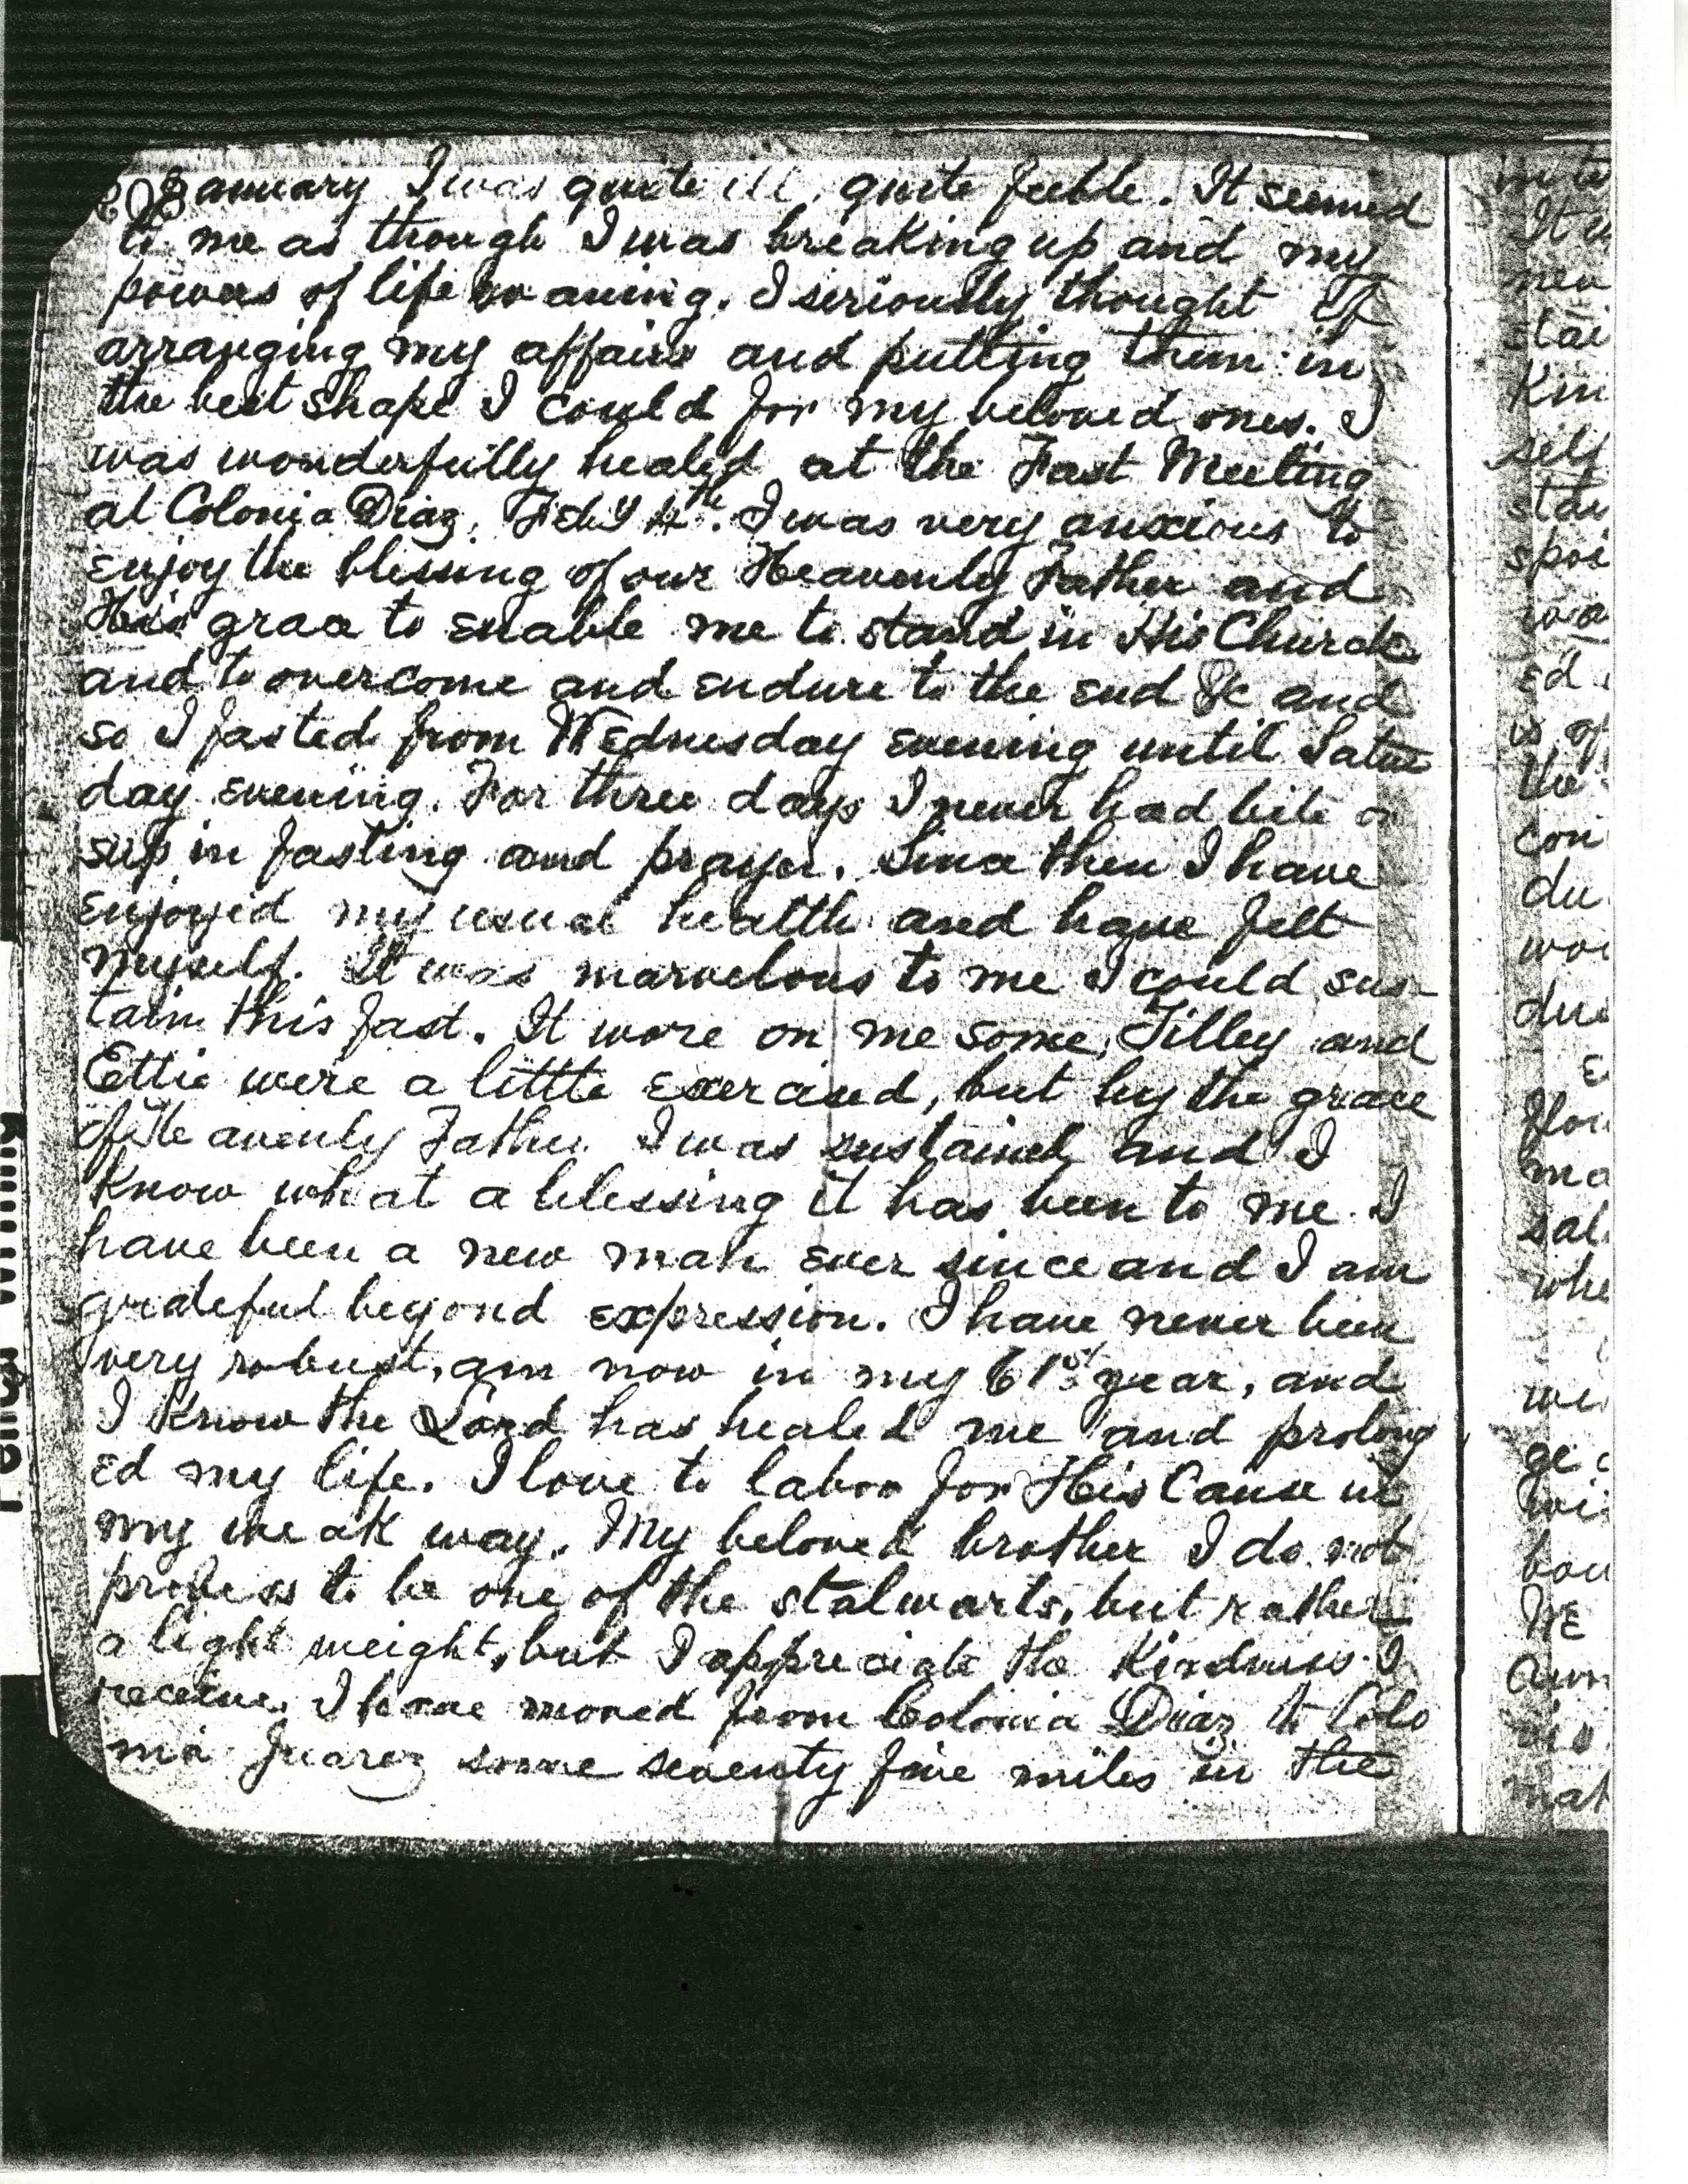 January I was quite ill, quite feeble. It seemed
to me as though I was breaking up and my
powers of life waning. I seriously thought of
arranging my affairs and putting them in
the best shape I could for my beloved ones. I
was wonderfully healed at the Fast Meeting
at Colonia Diaz, Feb'y 4th. I was very anxious to
enjoy the blessing of our Heavenly Father and
His grace to enable me to stand in His Church
and to overcome and endure to the end &c and
so I fasted from Wednesday evening until Satur
day evening. For three days I never had bite or
sup in fasting and prayer. Since then I have
enjoyed my usual health and have felt
myself. It was marvelous to me I could sus-
tain this fast. It wore on me some, Tilley and
Ettie were a little exercised, but by the grace
of Heavenly Father I was sustained and I
know what a blessing it has been to me. I
have been a new man ever since and I am
grateful beyond expression. I have never been
very robust, am now in my 61st year, and
I know the Lord has healed me and prolong
ed my life. I love to labor for His Cause in
my weak way. My beloved brother I do not
profess to be one of the stalwarts, but rather
a light weight, but I appreciate the kindness I
receive. I have moved from Colonia Diaz to Colo
nia Juarez some seventy five miles in the